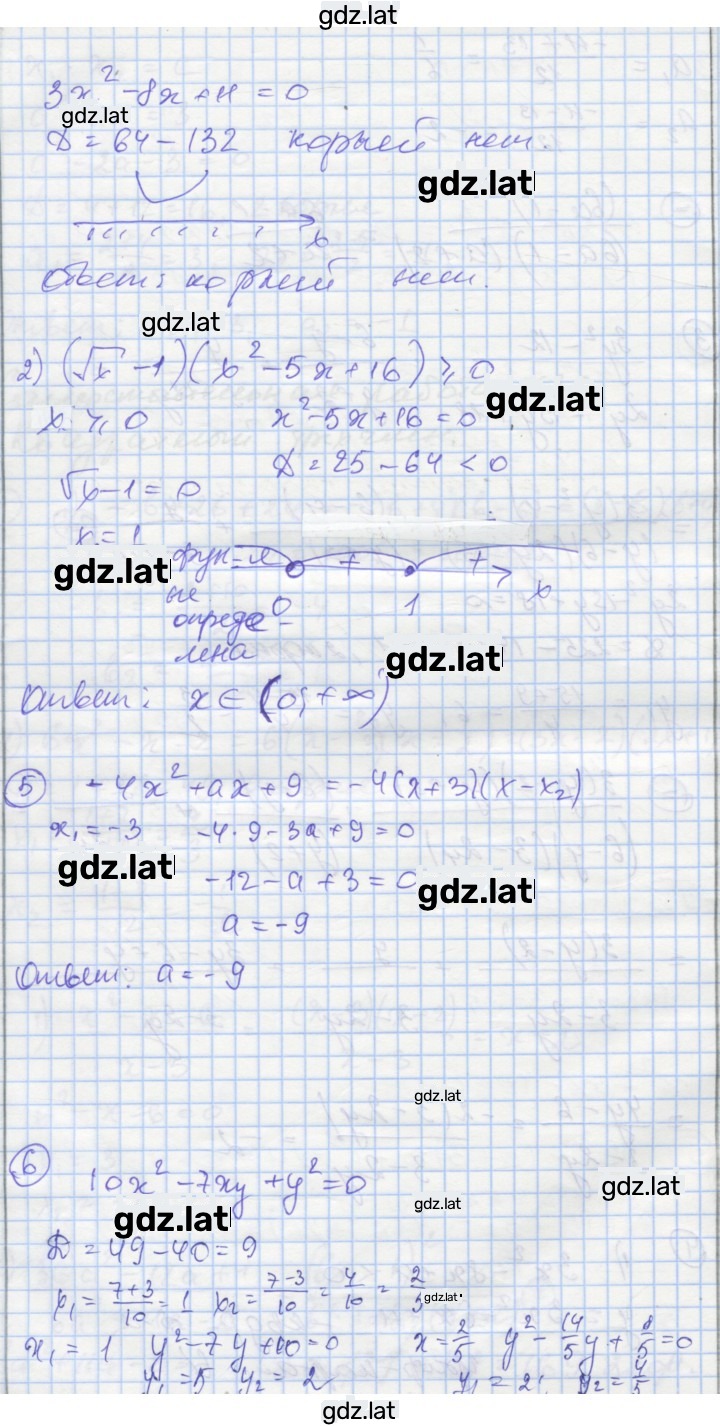 gdz.lat
3x² - 8x + 11 = 0
gdz.lat
D = 64 - 132 корней нет.
gdz.lat
x
Ответ: корней нет.
gdz.lat
2) (√x - 1)(x² - 5x + 16) ⩾ 0
gdz.lat
x ⩾ 0 x² - 5x + 16 = 0
D = 25 - 64 < 0
√x - 1 = 0
x = 1
gdz.lat
фун-я + + x
не 0 1
опреде-
лена
gdz.lat
Ответ: x ∈ (0; + ∞)
5 - 4x² + ax + 9 = -4(x + 3)(x - x₂)
x₁ = -3 -4·9 - 3a + 9 = 0
gdz.lat
-12 - a + 3 = 0
gdz.lat
a = -9
Ответ: a = -9
gdz.lat
6 10x² - 7xy + y² = 0
gdz.lat
gdz.lat
gdz.lat
D = 49 - 40 = 9
x₁ = (7+3)/10 = 1 x₂ = (7-3)/10 = 4/10 = 2/5
gdz.lat
x₁ = 1 y² - 7y + 10 = 0 x = 2/5 y² - 14/5 y + 8/5 = 0
y₁ = 5 y₂ = 2 y₁ = 2; y₂ = 4/5
gdz.lat